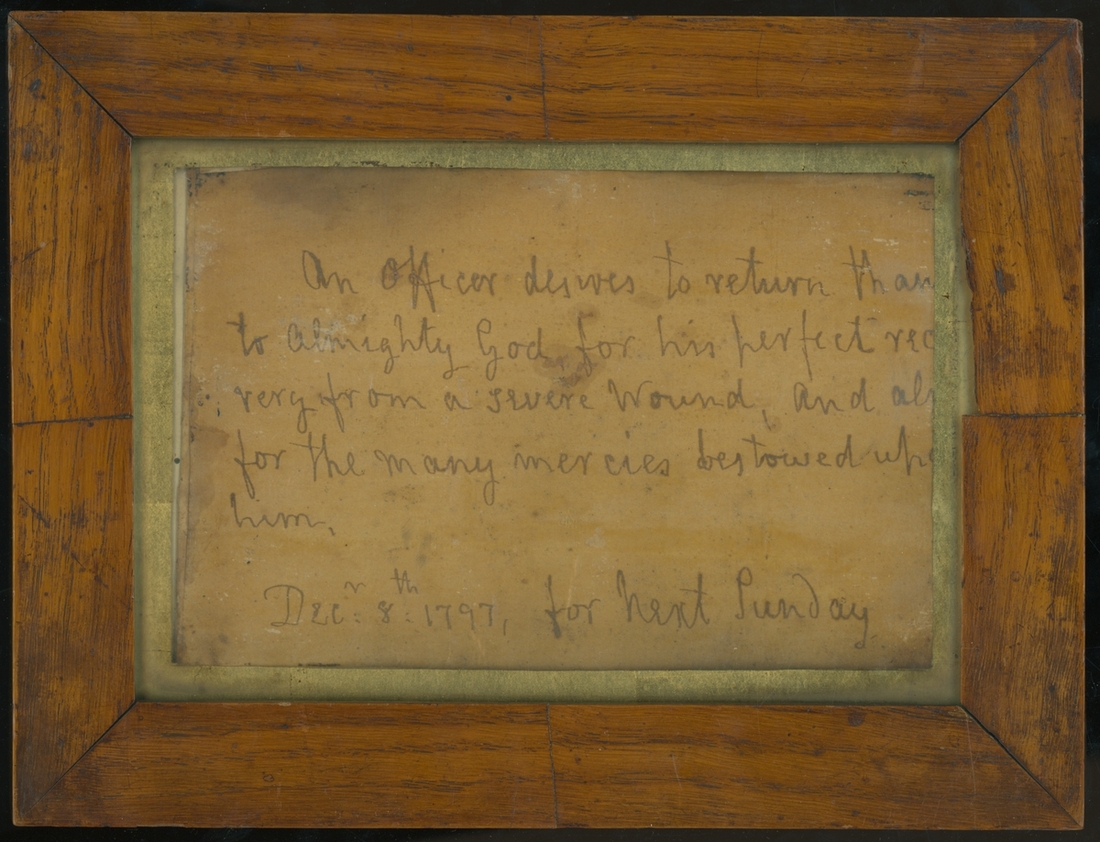 An Officer desires to return than
to Almighty God, for his perfect rec
very from a severe Wound, and als
for the many mercies bestowed upo
him,
Decr: 8th: 1797, for next Sunday